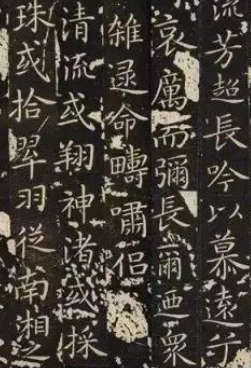 流芳超長吟以慕遠兮
哀厲而彌長爾迺衆
雜遝命疇嘯侶
清流或翔神渚或採
珠或拾翠羽從南湘之